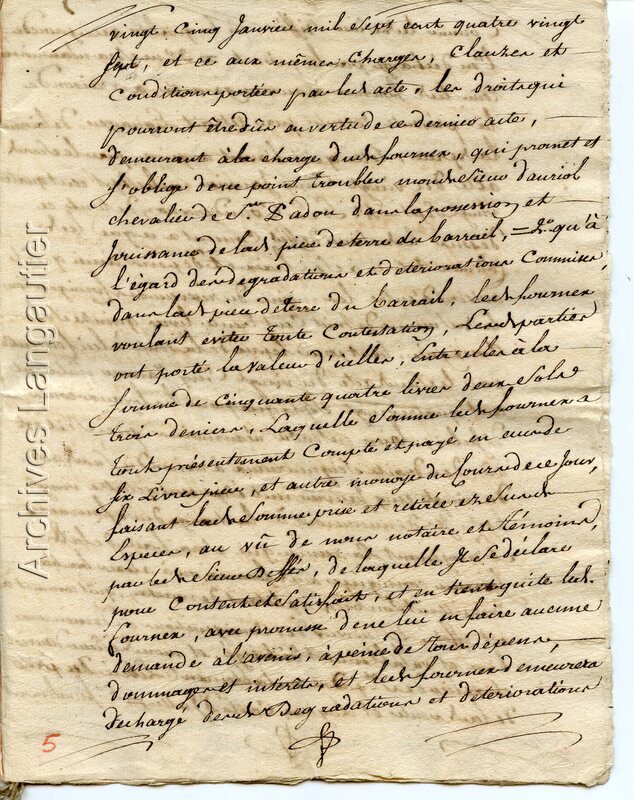 vingt cinq Janvier mil sept cent quatre vingt
sept, et ce aux mêmes charges, clauses et
Conditions portées par led acte, les droits qui
pourront être dûs en vertu de ce dernier acte,
demeurant à la charge dud fournex, qui promet et
s'oblige de ne point troubler mond Sieur dauriol
chevalier de St Padou dans la possession et
Jouissance de lad piece de terre du barrail, = 2o qu'à
l'égard des degradations et deteriorations Commises
dans lad piece de terre du barrail, led fournex
voulant eviter toute Contestation, Lesd parties
ont porté la valeur d'icelles, Entr'elles à la
somme de cinquante quatre livres deux sols
trois deniers, Laquelle somme led fournex a
tout présentement Compté et payé en ecus de
six Livres piece, et autre monoye du Cours de ce Jour,
faisant lad Somme prise et retirée ez susd
Especes, au vû de nous notaire et témoins,
par led Sieur, de laquelle Il se déclare
pour Content et Satisfait, et en tient quite led
fournex, avec promesse de ne lui en faire aucune
demande à l'avenir, à peine de tous dépens,
dommages et intérêts, et led fournex demeurera
dechargé desd Degradations et deteriorations
5
Archives Langautier